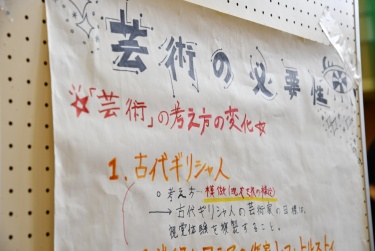 芸術の必要性
☆「芸術」の考え方の変化☆
1. 古代ギリシャ人
○考え方…模倣
→古代ギリシャ人の芸術家の目標は、
視覚体験を複製すること。